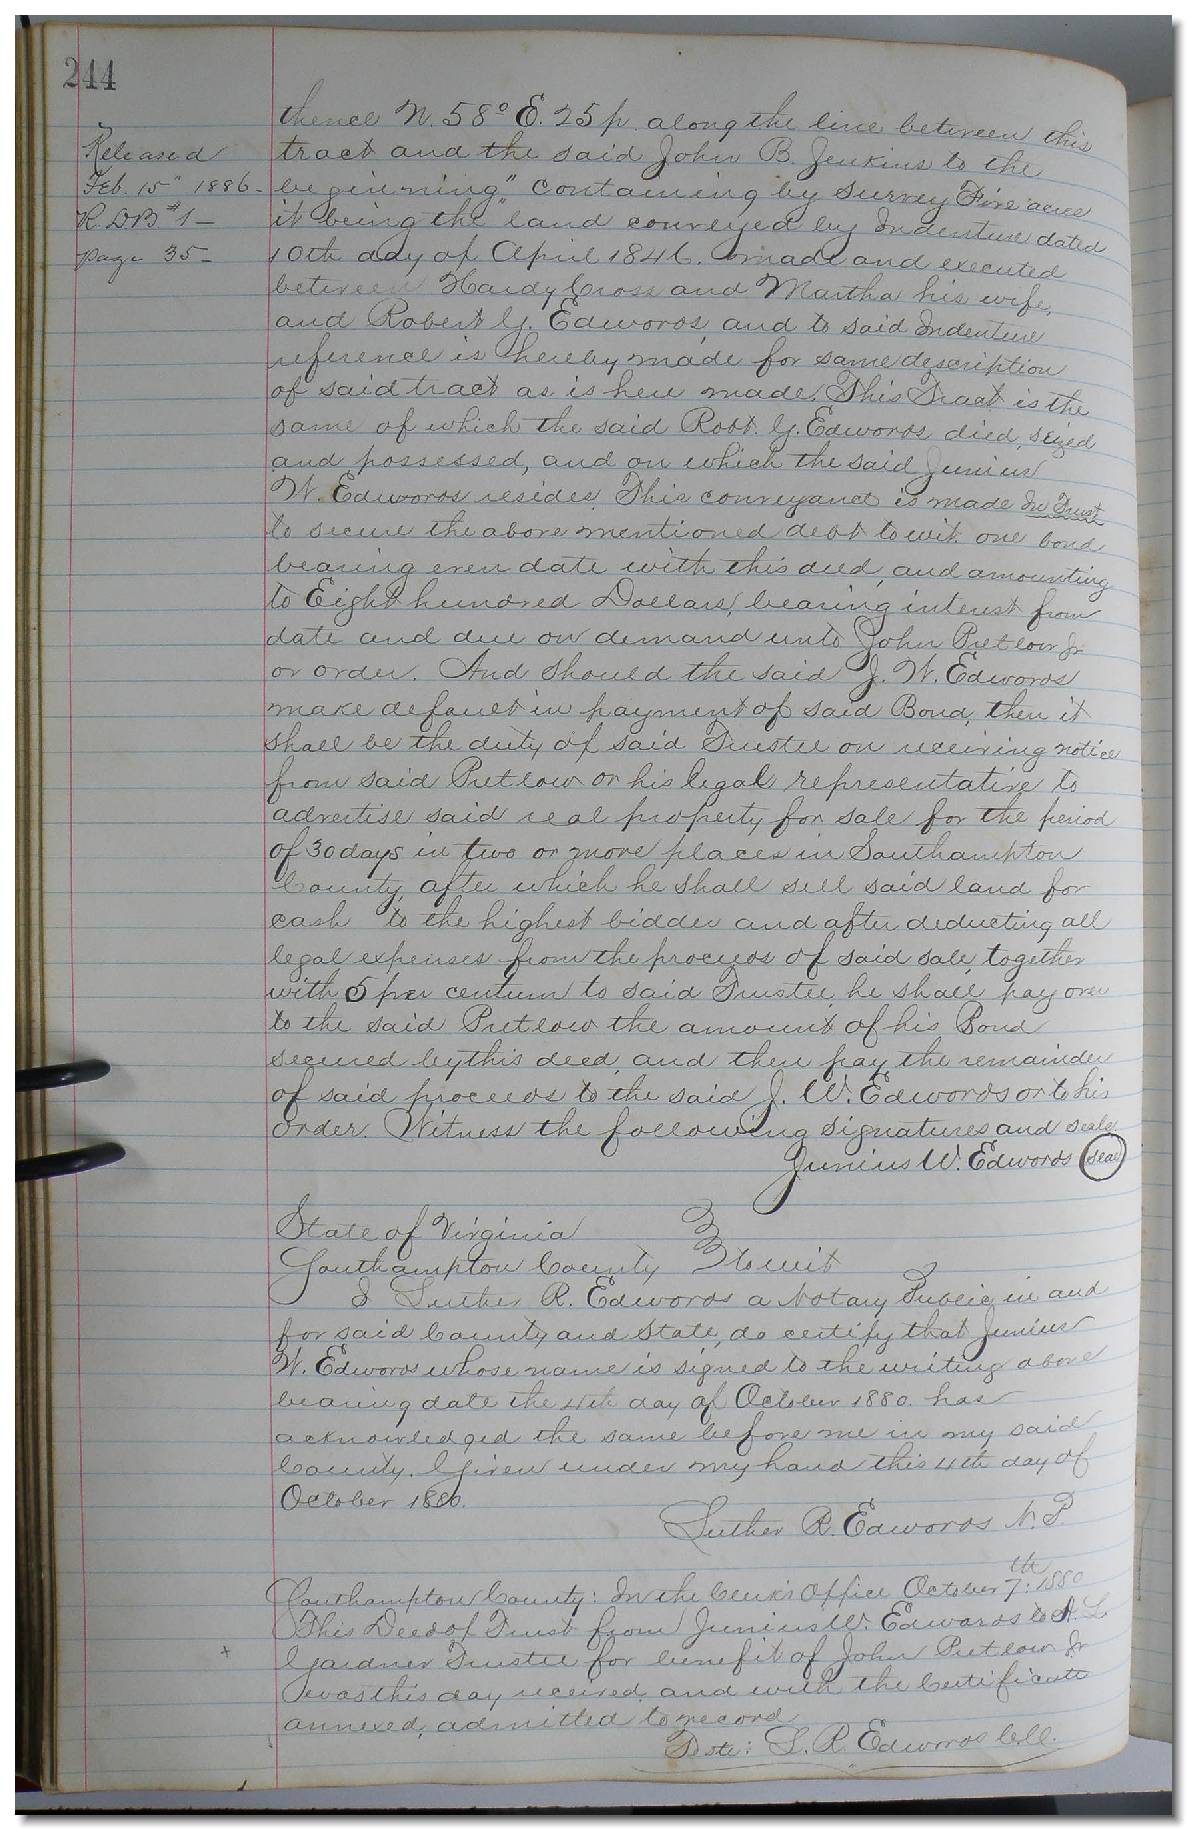 244
Released
Feb. 15" 1886-
R. DB #1-
page 35-
thence N. 58° E. 25 p. along the line between this
tract and the said John B. Jenkins to the
beginning" containing by survey Five acres
it being the "land conveyed by Indenture dated
10th day of April 1846. made and executed
between Hardy Cross and Martha his wife,
and Robert G. Edwards, and to said Indenture
reference is hereby made for same description
of said tract as is here made. This Tract is the
same of which the said Robt. G. Edwards died, seized
and possessed, and on which the said Junius
W. Edwards resides. This conveyance is made In Trust
to secure the above mentioned debt to wit. one bond
bearing even date with this deed, and amounting
to Eight hundred Dollars, bearing interest from
date and due on demand unto John Pretlow Jr
or order. And should the said J. W. Edwards
make default in payment of said Bond, then it
shall be the duty of said Trustee on receiving notice
from said Pretlow or his legal representative to
advertise said real property for sale for the period
of 30 days in two or more places in Southampton
County, after which he shall sell said land for
cash to the highest bidder and after deducting all
legal expenses from the proceeds of said sale, together
with 5 per centum to said Trustee, he shall pay over
to the said Pretlow the amount of his Bond
secured by this deed, and then pay the remainder
of said proceeds to the said J. W. Edwards or to his
order. Witness the following signatures and seals
Junius W. Edwards seal
State of Virginia
Southampton County to wit
I Luther R. Edwards a Notary Public, in and
for said County and State, do certify that Junius
W. Edwards whose name is signed to the writing above
bearing date the 4th day of October 1880. has
acknowledged the same before me in my said
County. Given under my hand this 4th day of
October 1880.
Luther R. Edwards N. P.
Southampton County: In the Clerk's Office October 7th: 1880
This Deed of Trust from Junius W. Edwards to A. L.
Gardner Trustee for benefit of John Pretlow Jr
was this day received, and with the Certificate
annexed, admitted to record
Teste: L. R. Edwards Clk.